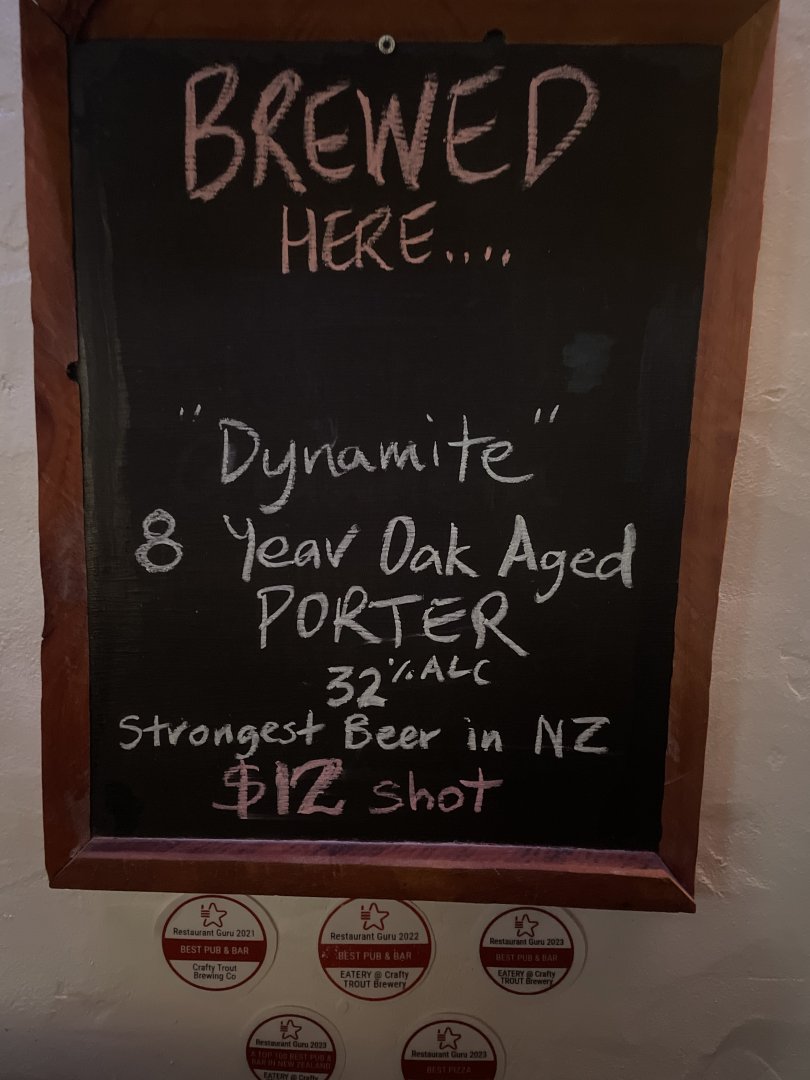 BREWED
HERE....
"Dynamite"
8 Year Oak Aged
PORTER
32% ALC
Strongest Beer in NZ
$12 shot
Restaurant Guru 2021
BEST PUB & BAR
Crafty Trout
Brewing Co
Restaurant Guru 2022
BEST PUB & BAR
EATERY @ Crafty
TROUT Brewery
Restaurant Guru 2023
BEST PUB & BAR
EATERY @ Crafty
TROUT Brewery
Restaurant Guru 2023
A TOP 100 BEST PUB &
BAR IN NEW ZEALAND
EATERY @ Crafty
Restaurant Guru 2023
BEST PIZZA